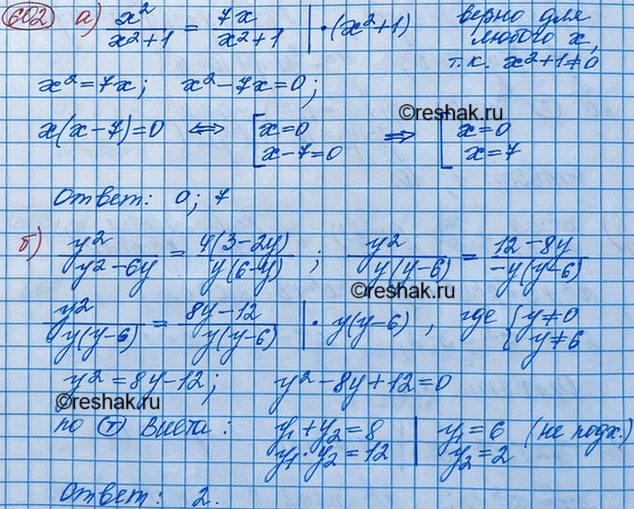 602 а) x²/(x²+1) = 7x/(x²+1) | · (x²+1) верно для
любого x,
т.к. x²+1≠0
x² = 7x; x² - 7x = 0;
©reshak.ru
x(x-7)=0 ⟺ [ x=0 ⟹ [ x=0
x-7=0 x=7
Ответ: 0; 7
б) y²/(y²-6y) = 4(3-2y)/(y(6-y)) ; y²/(y(y-6)) = (12-8y)/(-y(y-6))
©reshak.ru
y²/(y(y-6)) = (8y-12)/(y(y-6)) | · y(y-6), где { y≠0
y≠6
y² = 8y-12; y² - 8y + 12 = 0
©reshak.ru
по т Виета: y₁ + y₂ = 8 | y₁ = 6 (не подх.)
y₁ · y₂ = 12 | y₂ = 2
Ответ: 2.